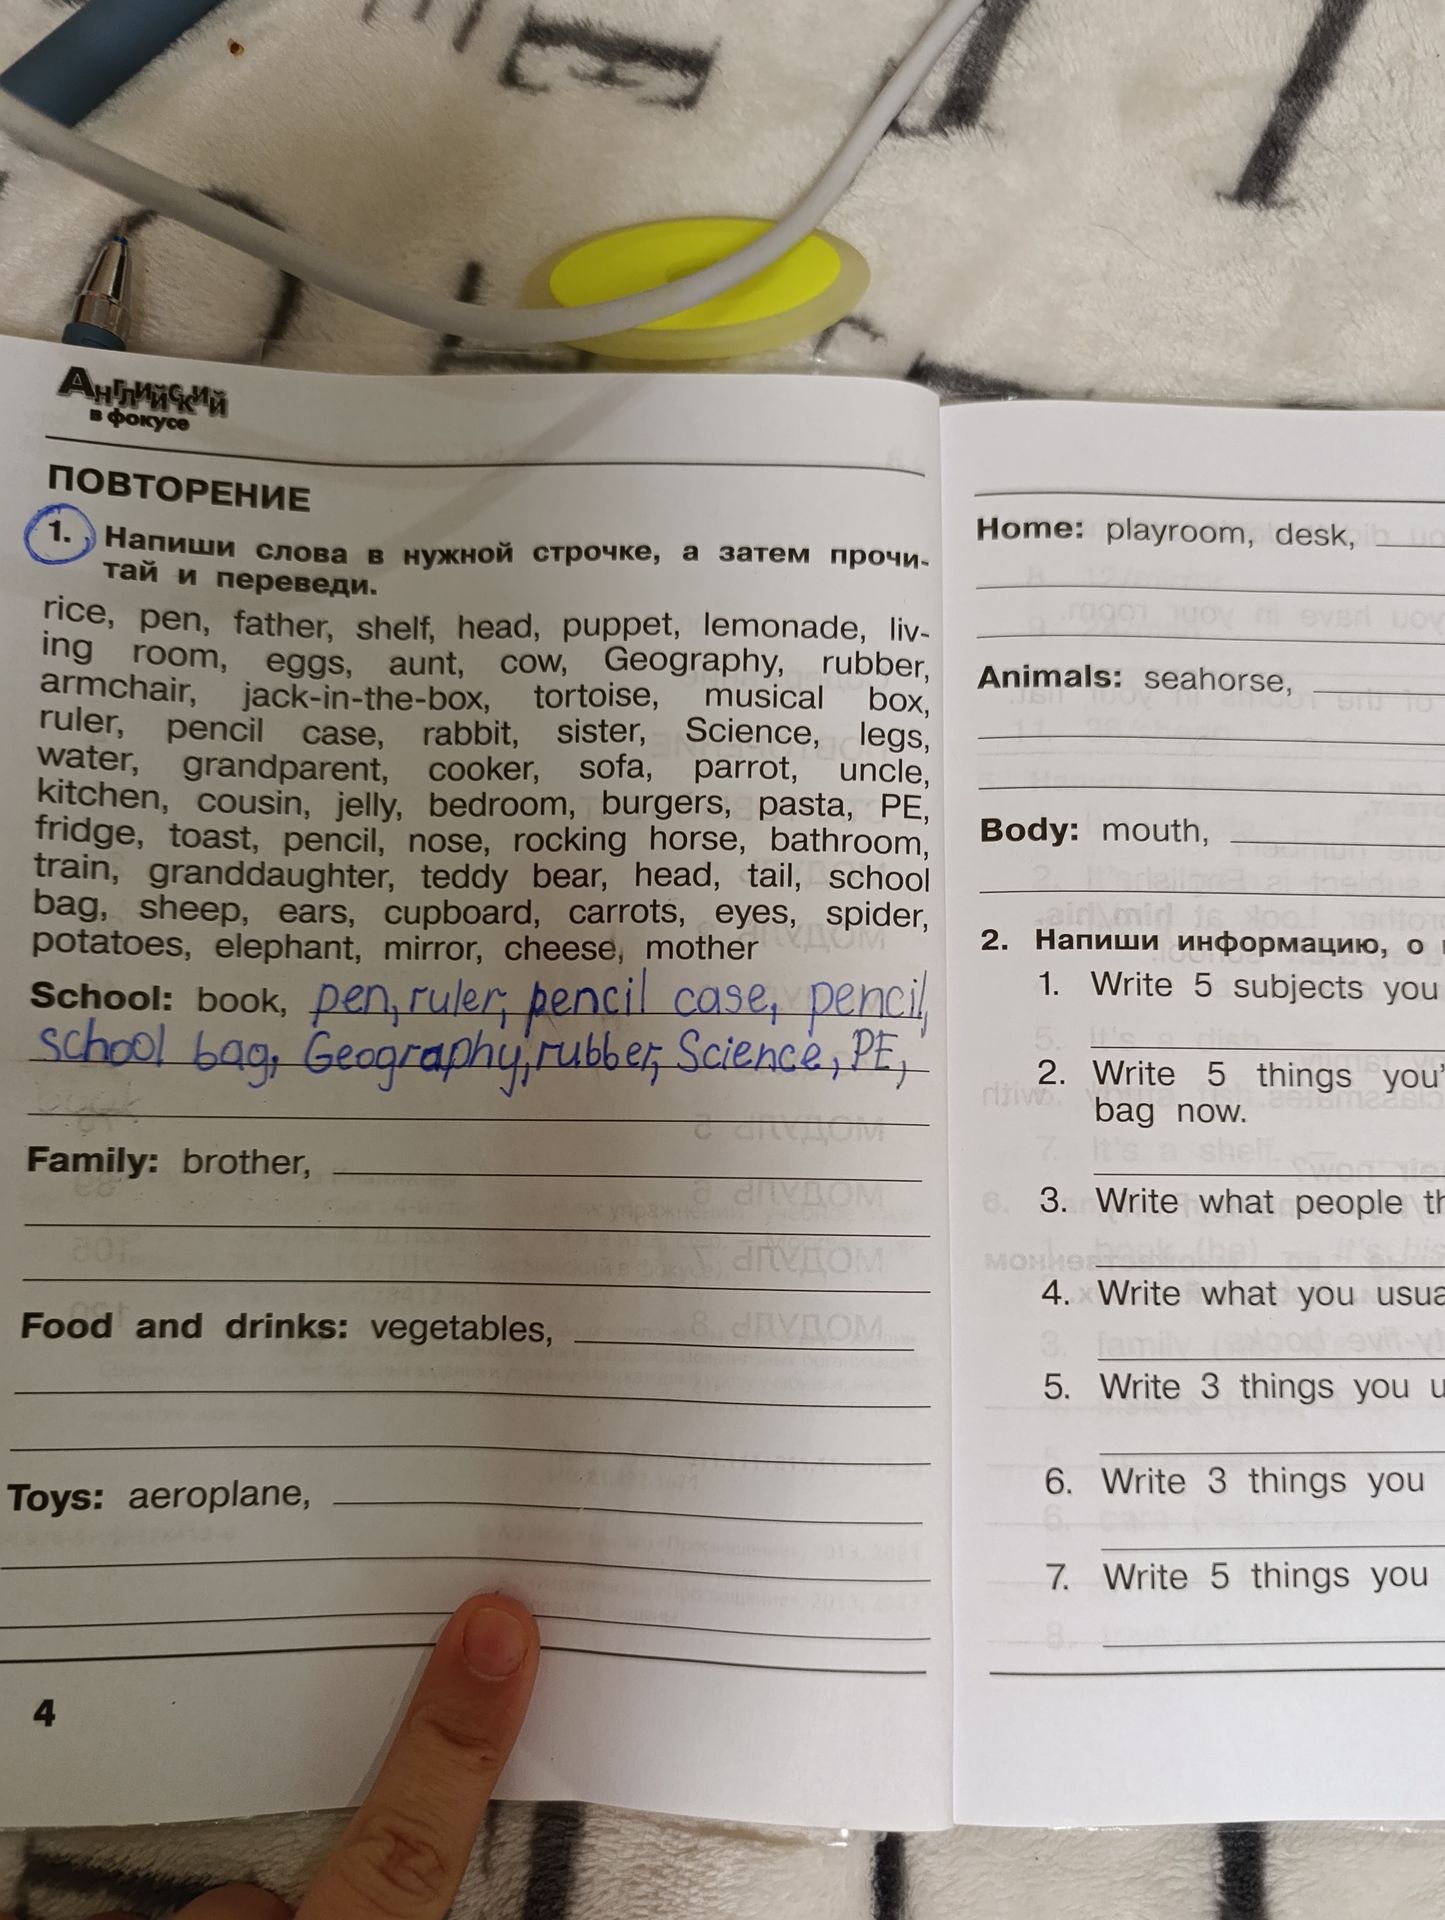 Английский
в фокусе
ПОВТОРЕНИЕ
1. Напиши слова в нужной строчке, а затем прочи-
тай и переведи.
rice, pen, father, shelf, head, puppet, lemonade, liv-
ing room, eggs, aunt, cow, Geography, rubber,
armchair, jack-in-the-box, tortoise, musical box,
ruler, pencil case, rabbit, sister, Science, legs,
water, grandparent, cooker, sofa, parrot, uncle,
kitchen, cousin, jelly, bedroom, burgers, pasta, PE,
fridge, toast, pencil, nose, rocking horse, bathroom,
train, granddaughter, teddy bear, head, tail, school
bag, sheep, ears, cupboard, carrots, eyes, spider,
potatoes, elephant, mirror, cheese, mother
School: book, pen, ruler, pencil case, pencil,
school bag, Geography, rubber, Science, PE,
Family: brother,
Food and drinks: vegetables,
Toys: aeroplane,
4
Home: playroom, desk,
Animals: seahorse,
Body: mouth,
2. Напиши информацию, о
1. Write 5 subjects you
2. Write 5 things you'
bag now.
3. Write what people
4. Write what you
5. Write 3 things you
6. Write 3 things you
7. Write 5 things you